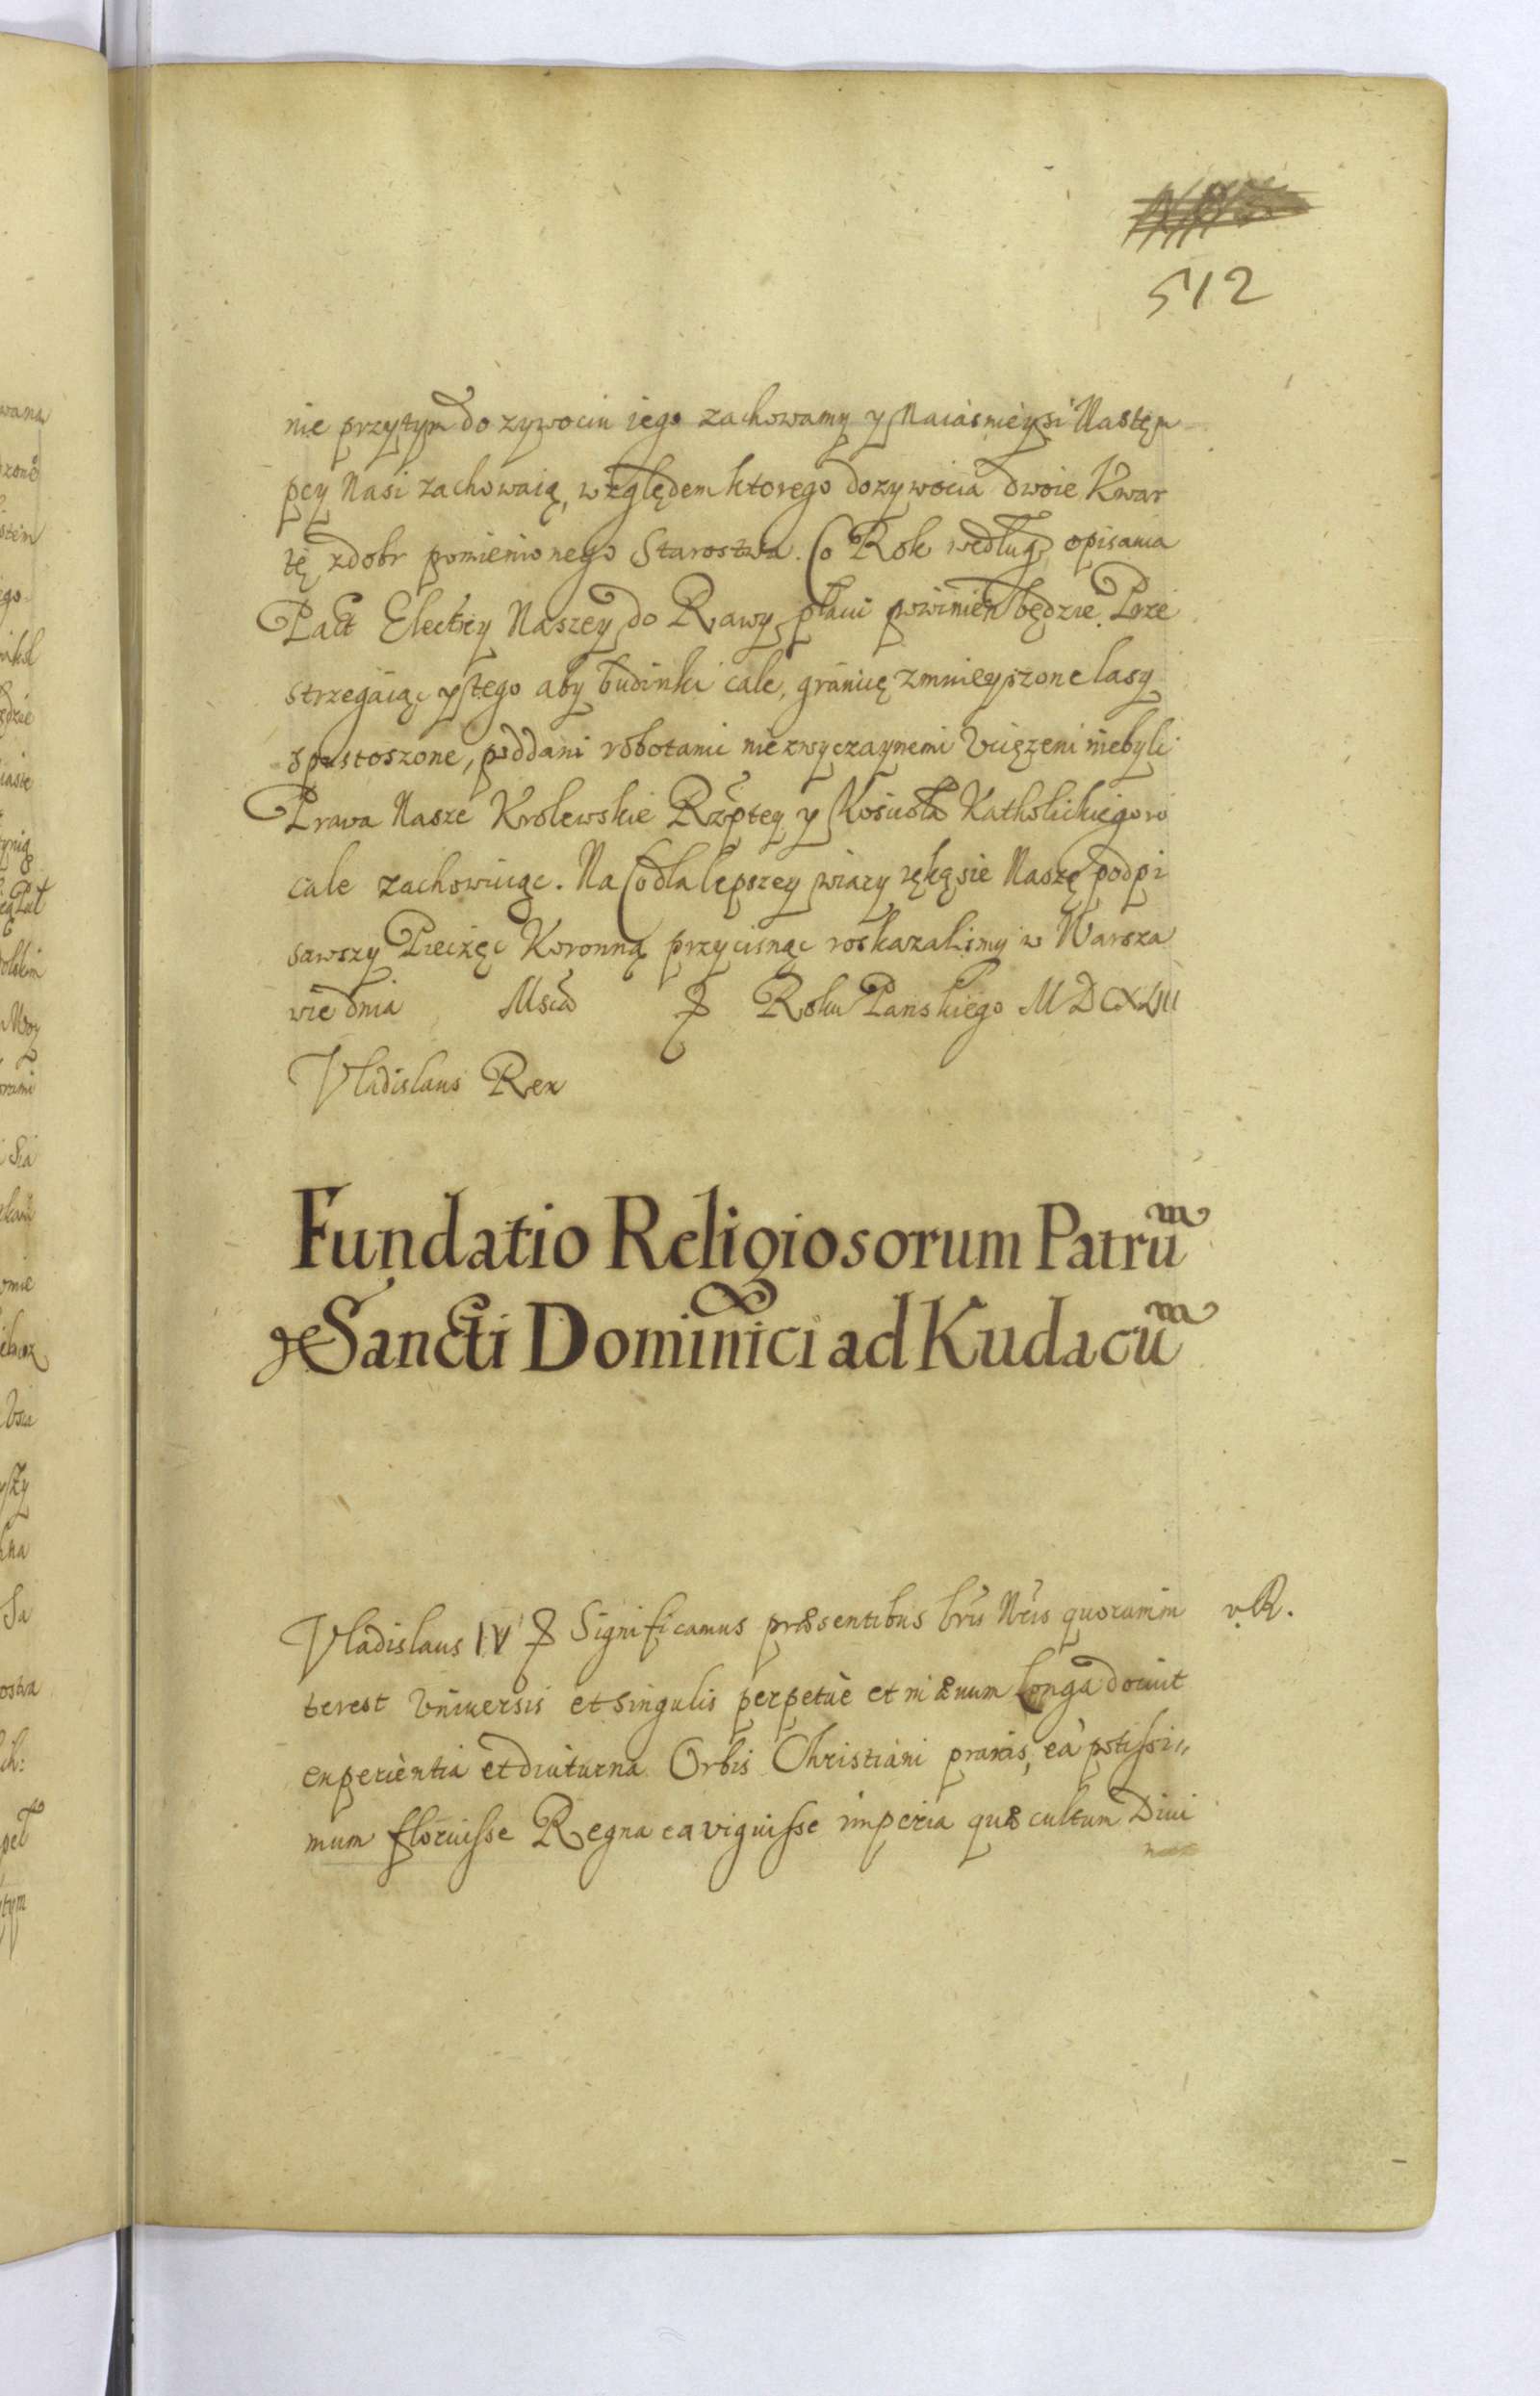 512
nie przytym dozywociu iego zachowamy y Naiásnieysi Nastęm
pcy Nasi zachowaią, względem ktorego dozywocia dwoie Kwar
tę zdobr pomienionego Starostwa. Co Rok według opisania
Pact Electiey Naszey do Rawy płacić powinień będzie. Prze
strzegáiąc y tego aby budinki cale, gránicę zmnieyszone lasy
spustoszone, poddani robotami niezwyczaynemi Uciązeni niebyli
Prava Nasze Krolewskie Rzptey y Kościoła Katholickiego w
cale zachowuiąc. Na Co dla lepszey wiary ręką sie Naszę podpi
sawszy Pieczęc Koronną przycisnąc roskazalismy w Warsza
wie dnia Msca Roku Panskiego MDCXLIII
Vladislaus Rex
Fundatio Religiosorum Patrum
Sancti Dominici ad Kudacum
Vladislaus IV Significamus præsentibus lris Nris quorum in vR.
terest Universis et singulis perpetuè et in ævum Longa docuit
experientia et diuturna Orbis Christiani praxis, eà potissi„
mum floruisse Regna ea viguisse imperia quæ cultum Divi